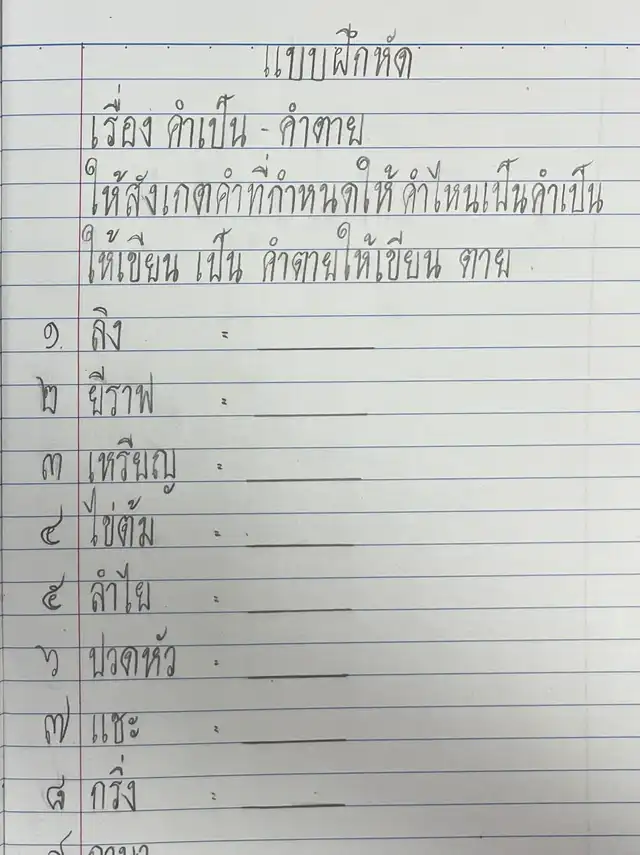 แบบฝึกหัด
เรื่อง คำเป็น - คำตาย
ให้สังเกตคำที่กำหนดให้ คำไหนเป็นคำเป็น
ให้เขียน เป็น คำตายให้เขียน ตาย
๑. ลิง =
๒ ยีราฟ =
๓ เหรียญ =
๔ ไข่ต้ม =
๕ ลำไย =
๖ ปวดหัว =
๗ แชะ =
๘ กริ่ง =